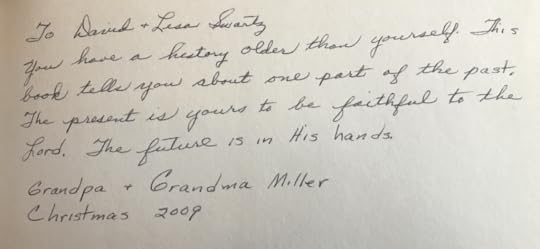 To David + Lisa Swartz
You have a history older than yourself. This
book tells you about one part of the past.
The present is yours to be faithful to the
Lord. The future is in His hands.
Grandpa + Grandma Miller
Christmas 2009